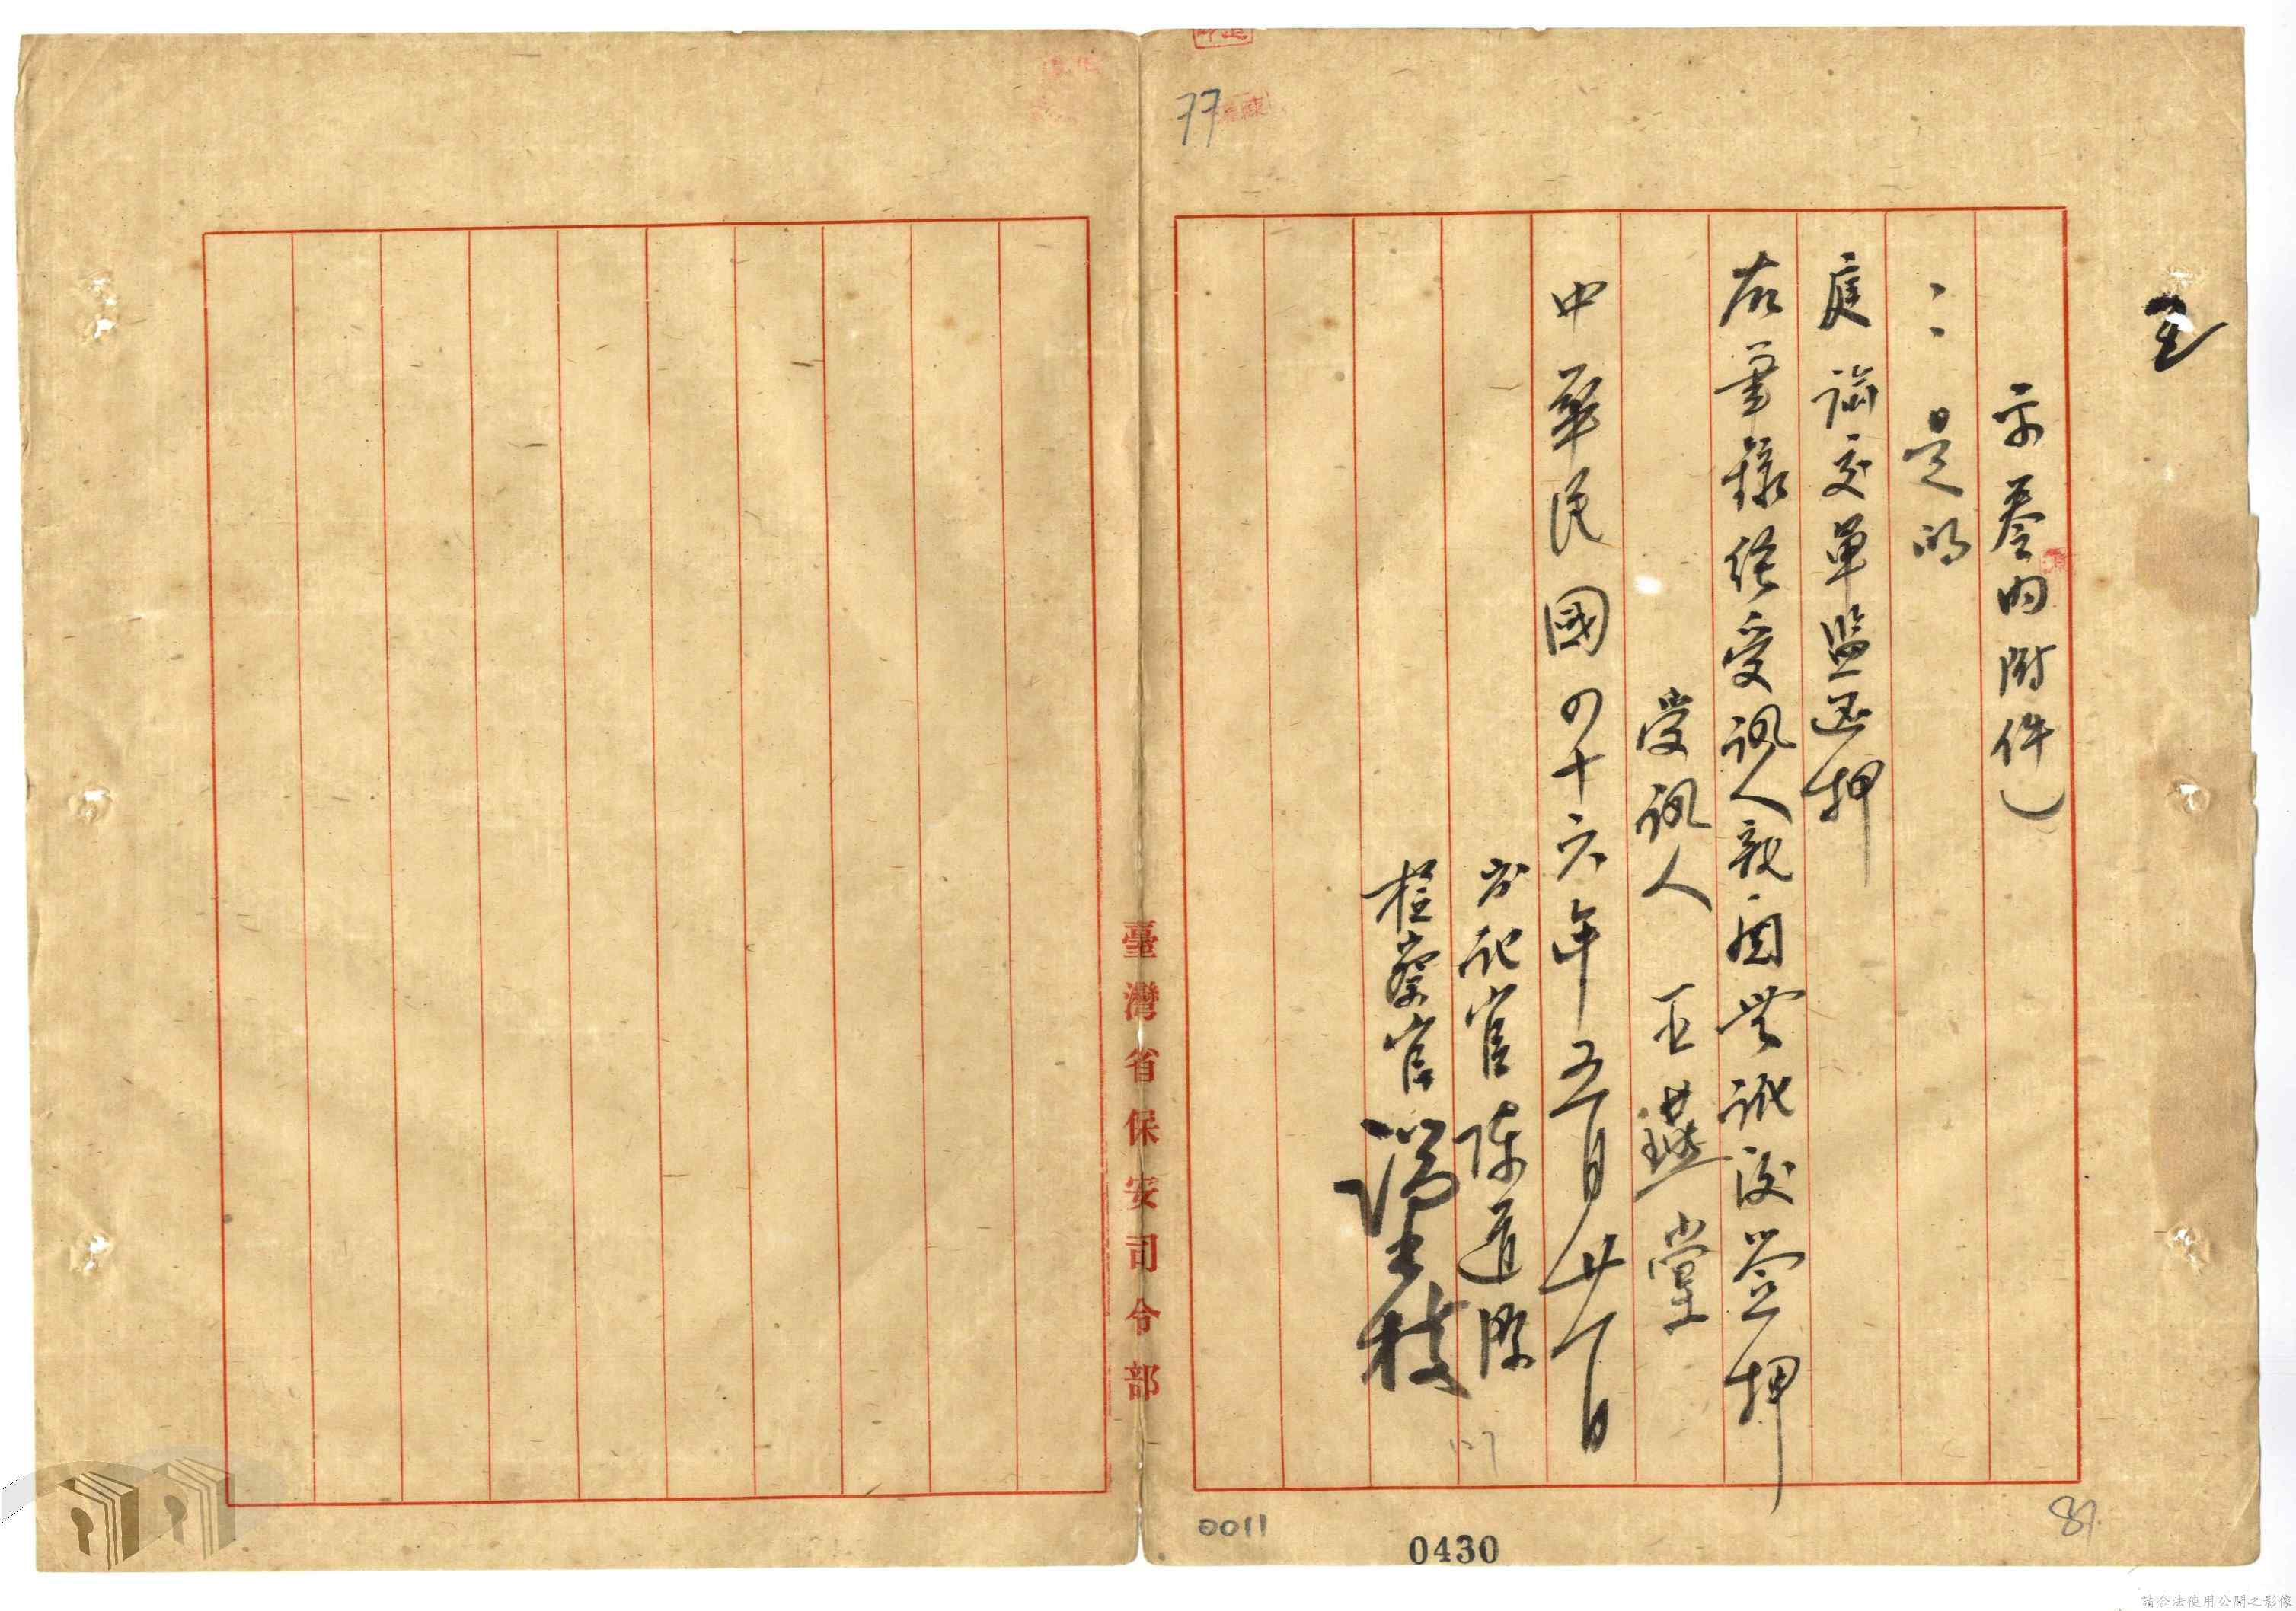 示卷內附件)
：是的
庭諭交軍監還押
右筆錄經受訊人親閱無訛後簽押
受訊人 王燕堂
中華民國四十六年五月廿一日
書記官 陳道際
檢察官
臺灣省保安司令部
77
0011
0430
87
請合法使用公開之影像